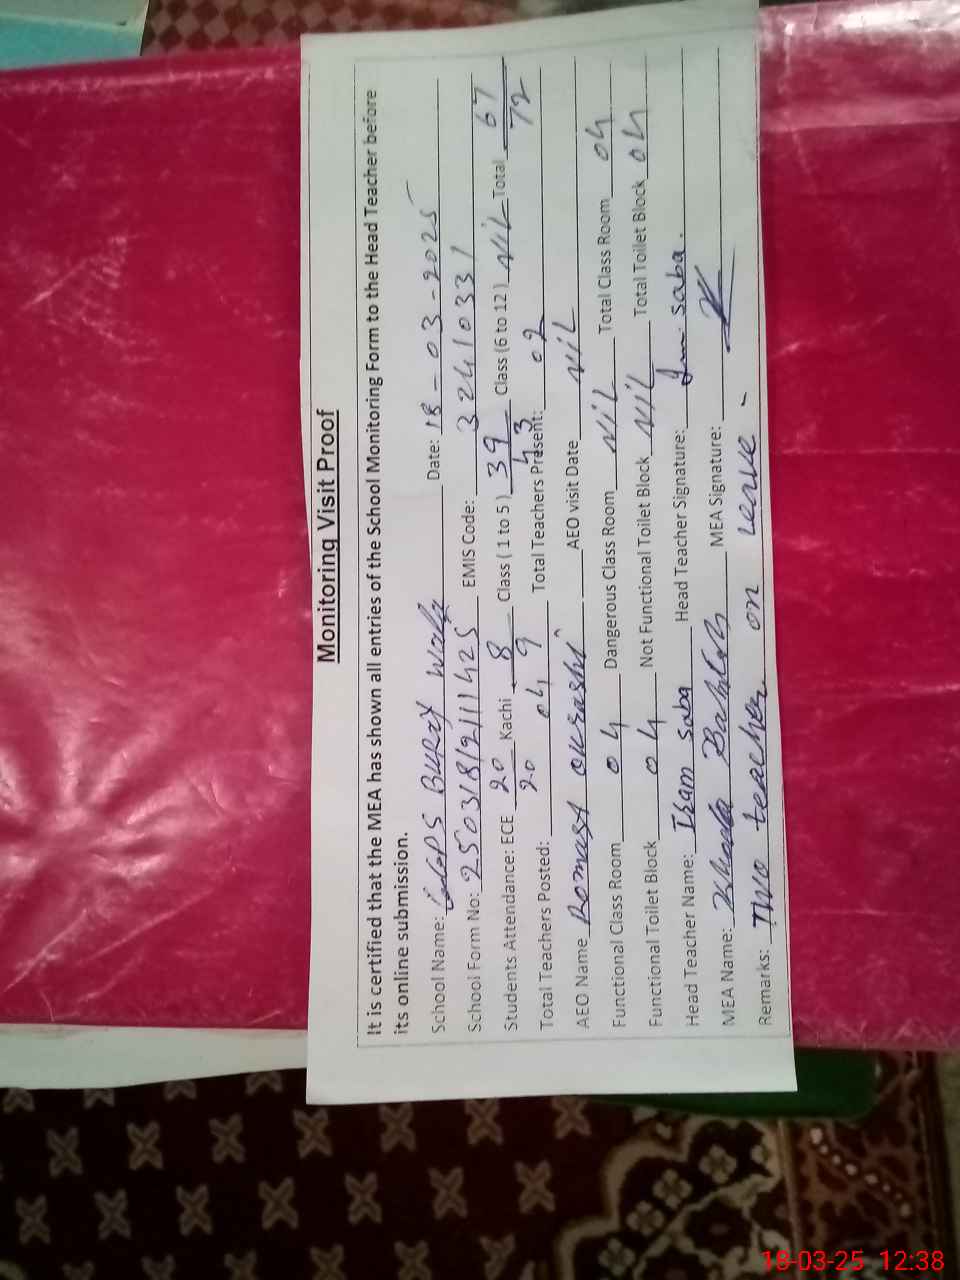 Monitoring Visit Proof
It is certified that the MEA has shown all entries of the School Monitoring Form to the Head Teacher before
its online submission.
School Name: GGPS Date: 18-03-2025
School Form No: EMIS Code: 32410331
Students Attendance: ECE 20 Kachi 8 Class (1 to 5) 39 Class (6 to 12) NIL Total 67
20 9 43 72
Total Teachers Posted: 04 Total Teachers Present: 02
AEO Name AEO visit Date NIL
Functional Class Room 04 Dangerous Class Room NIL Total Class Room 04
Functional Toilet Block 04 Not Functional Toilet Block NIL Total Toilet Block 04
Head Teacher Name: Iram Saba Head Teacher Signature: Saba.
MEA Name: MEA Signature:
Remarks: Two teacher on leave -
18-03-25 12:38